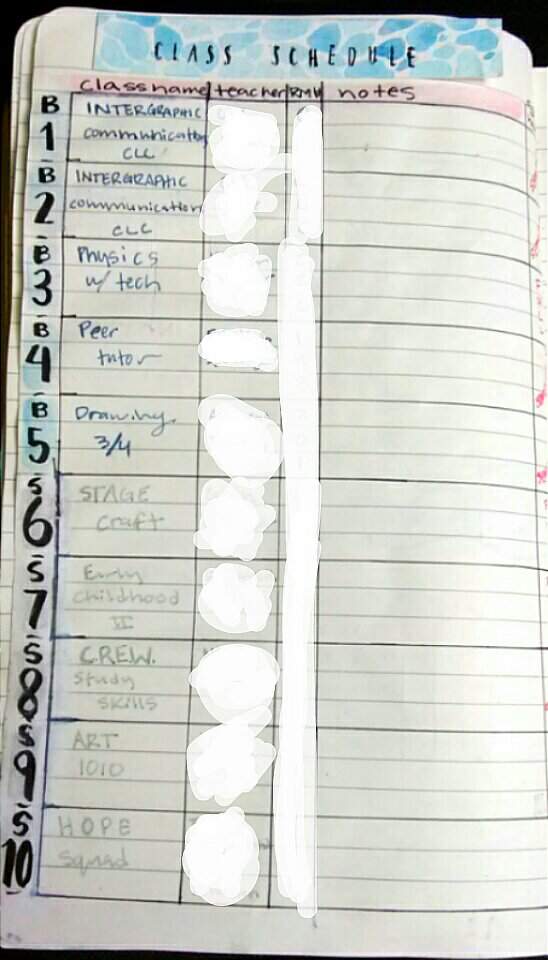 CLASS SCHEDULE
class name teacher RM# notes
B INTERGRAPHIC
1 communication
CLC
B INTERGRAPHIC
2 communication
CLC
B Physics
3 w/ tech
B Peer
4 tutor
B Drawing
5 3/4
S STAGE
6 craft
S Early
7 childhood
II
S CREW.
8 study
skills
S ART
9 1010
S HOPE
10 squad